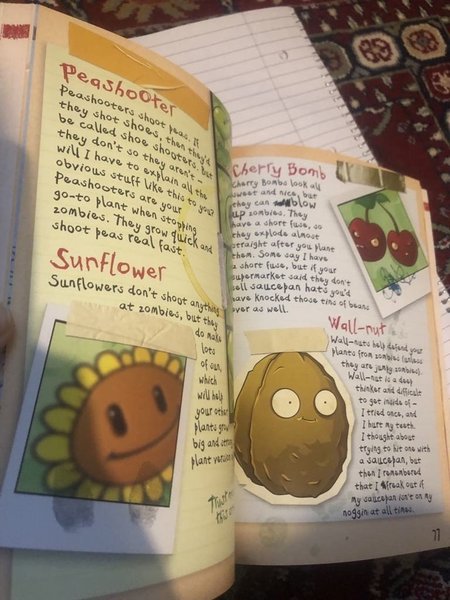 Peashooter
Peashooters shoot peas. If
they shot shoes, then they'd
be called shoe shooters. But
they don't so they aren't -
will I have to explain all the
obvious stuff like this to you?
Peashooters are your
go-to plant when stopping
zombies. They grow quick and
shoot peas real fast.
Sunflower
Sunflowers don't shoot anything
at zombies, but they
do make
lots
of sun,
which
will help
your other
plants grow
big and
plant
Trust
this
Cherry Bomb
Cherry Bombs look all
sweet and nice, but
they can blow
up zombies. They
have a short fuse, so
they explode almost
straight after you plant
them. Some say I have
a short fuse, but if your
supermarket said they didn't
sell saucepan hats you'd
have knocked those tins of beans
over as well.
Wall-nut
Wall-nuts help defend your
plants from zombies (unless
they are jumpy zombies).
Wall-nut is a deep
thinker and difficult
to get inside of -
I tried once, and
I hurt my teeth.
I thought about
trying to hit one with
a saucepan, but
then I remembered
that I freak out if
my saucepan isn't on my
noggin at all times.
11